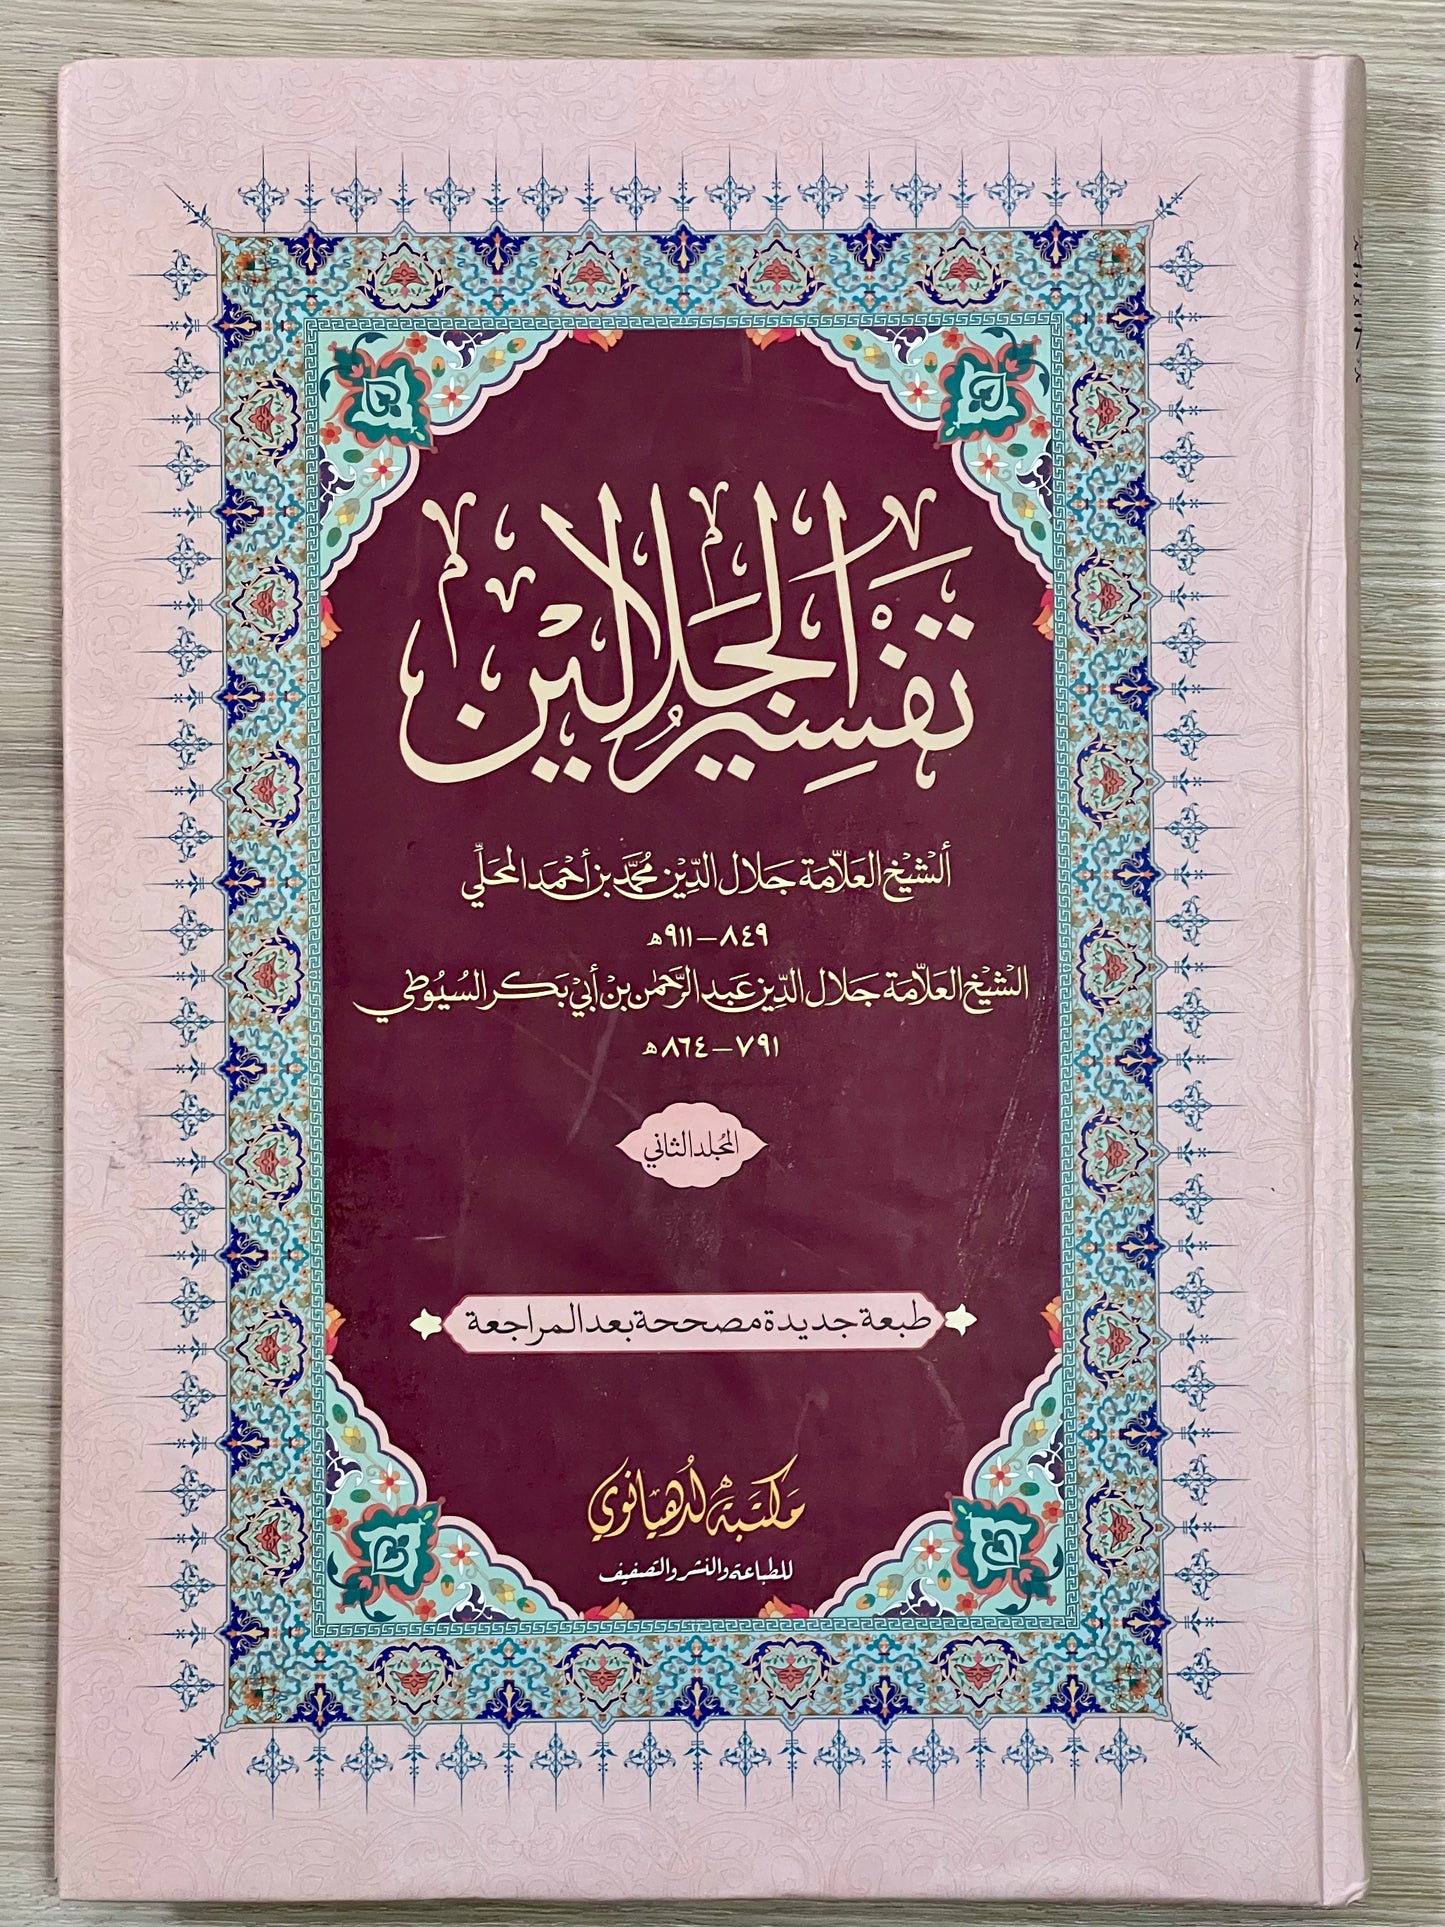 تَفْسِيرُ الجَلَالَيْن
ألشيْخ العَلّامَة جَلال الدِّيْن مُحَمَّد بن أحْمَد المَحَلِّي
٨٤٩ – ٩١١ ھ
الشيْخ العَلّامَة جَلال الدِّيْن عَبد الرَّحمٰن بنْ أبيْ بَكر السيُوطي
٧٩١ – ٨٦٤ ھ
المُجلد الثاني
طبعة جديدة مصححة بعد المراجعة
مَكتَبَة لُدهيَانوي
للطباعة والنشر والتصفيف